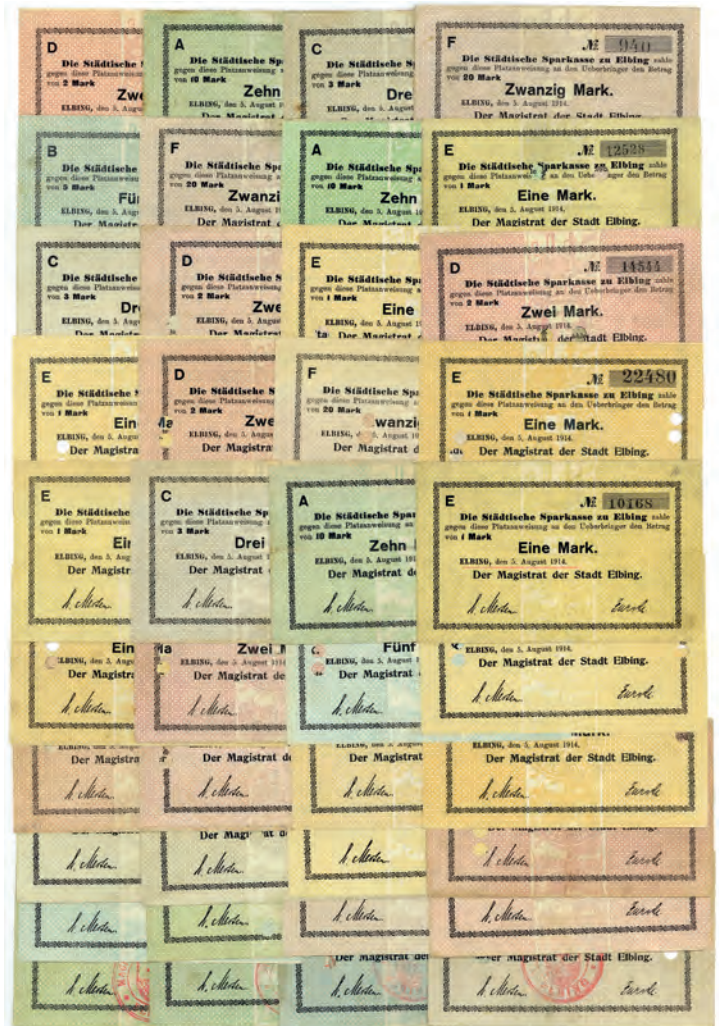 D
Die Städtische
gegen diese Platzanweisung
von 2 Mark
Zwe
ELBING, den 5. August
A
Die Städtische Sp
gegen diese Platzanweisung
von 10 Mark
Zehn
ELBING, den 5. August
Der Magistrat
C
Die Städtische Sp
gegen diese Platzanweisung
von 3 Mark
Dre
ELBING, den 5. August
F
№ 940
Die Städtische Sparkasse zu Elbing zahle
gegen diese Platzanweisung an den Ueberbringer den Betrag
von 20 Mark
Zwanzig Mark.
ELBING, den 5. August 1914.
Der Magistrat der Stadt Elbing.
B
Die Städtische
gegen diese Platzanweisung
von 5 Mark
Fü
ELBING, den 5. Aug
Der Magis
F
Die Städtische Spa
gegen diese Platzanweisung
von 20 Mark
Zwanzi
ELBING, den 5. August
Der Magistrat
A
Die Städtische Spa
gegen diese Platzanweisung
von 10 Mark
Zehn
ELBING, den 5. August
Der Magistrat
E
№ 12528
Die Städtische Sparkasse zu Elbing zahle
gegen diese Platzanweisung an den Ueberbringer den Betrag
von 1 Mark
Eine Mark.
ELBING, den 5. August 1914.
Der Magistrat der Stadt Elbing.
C
Die Städtische
gegen diese Platzanweisung
von 3 Mark
Dr
ELBING, den 5. Aug
Der Magist
D
Die Städtische Sp
gegen diese Platzanweisung
von 2 Mark
Zwe
ELBING, den 5. August
Der Magistrat
E
Die Städtische Spa
gegen diese Platzanweisung
von 1 Mark
Eine
ELBING, den 5. August
Der Magistrat
D
№ 14544
Die Städtische Sparkasse zu Elbing zahle
gegen diese Platzanweisung an den Ueberbringer den Betrag
von 2 Mark
Zwei Mark.
ELBING, den 5. August 1914.
Der Magistrat der Stadt Elbing.
E
Die Städtische
gegen diese Platzanweisung
von 1 Mark
Ein
ELBING, den 5. Aug
Der Magistra
D
Die Städtische Sp
gegen diese Platzanweisung
von 2 Mark
Zwe
ELBING, den 5. August
Der Magistra
F
Die Städtische Spa
gegen diese Platzanweisung
von 20 Mark
wanzig
ELBING, den 5. August
Der Magistrat d
E
№ 22480
Die Städtische Sparkasse zu Elbing zahle
gegen diese Platzanweisung an den Ueberbringer den Betrag
von 1 Mark
Eine Mark.
ELBING, den 5. August 1914.
Der Magistrat der Stadt Elbing.
E
Die Städtische
gegen diese Platzanweisung
von 1 Mark
Ei
ELBING, den 5. Aug
Der Magistr
C
Die Städtische Sp
gegen diese Platzanweisung
von 3 Mark
Drei
ELBING, den 5. August 1
Der Magistrat
A
Die Städtische Spar
gegen diese Platzanweisung an
von 10 Mark
Zehn
ELBING, den 5. August 191
Der Magistrat de
E
№ 10168
Die Städtische Sparkasse zu Elbing zahle
gegen diese Platzanweisung an den Ueberbringer den Betrag
von 1 Mark
Eine Mark.
ELBING, den 5. August 1914.
Der Magistrat der Stadt Elbing.
Ein
Ma
ELBING, den 5. Aug
Der Magistra
Zwei M
ELBING, den 5. August 1914
Der Magistrat de
Fünf
ELBING, den 5. August
Der Magistrat
ELBING, den 5. August 1914.
Der Magistrat der Stadt Elbing.
Der Magistra
Der Magistrat d
ELBING, den 5. August
Der Magistrat
ELBING, den 5. August 1914.
Der Magistrat der Stadt Elbing.
Der Magistrat der Stadt Elbing.
Der Magistrat
Der Magistrat der Stadt Elbing.
ELBING